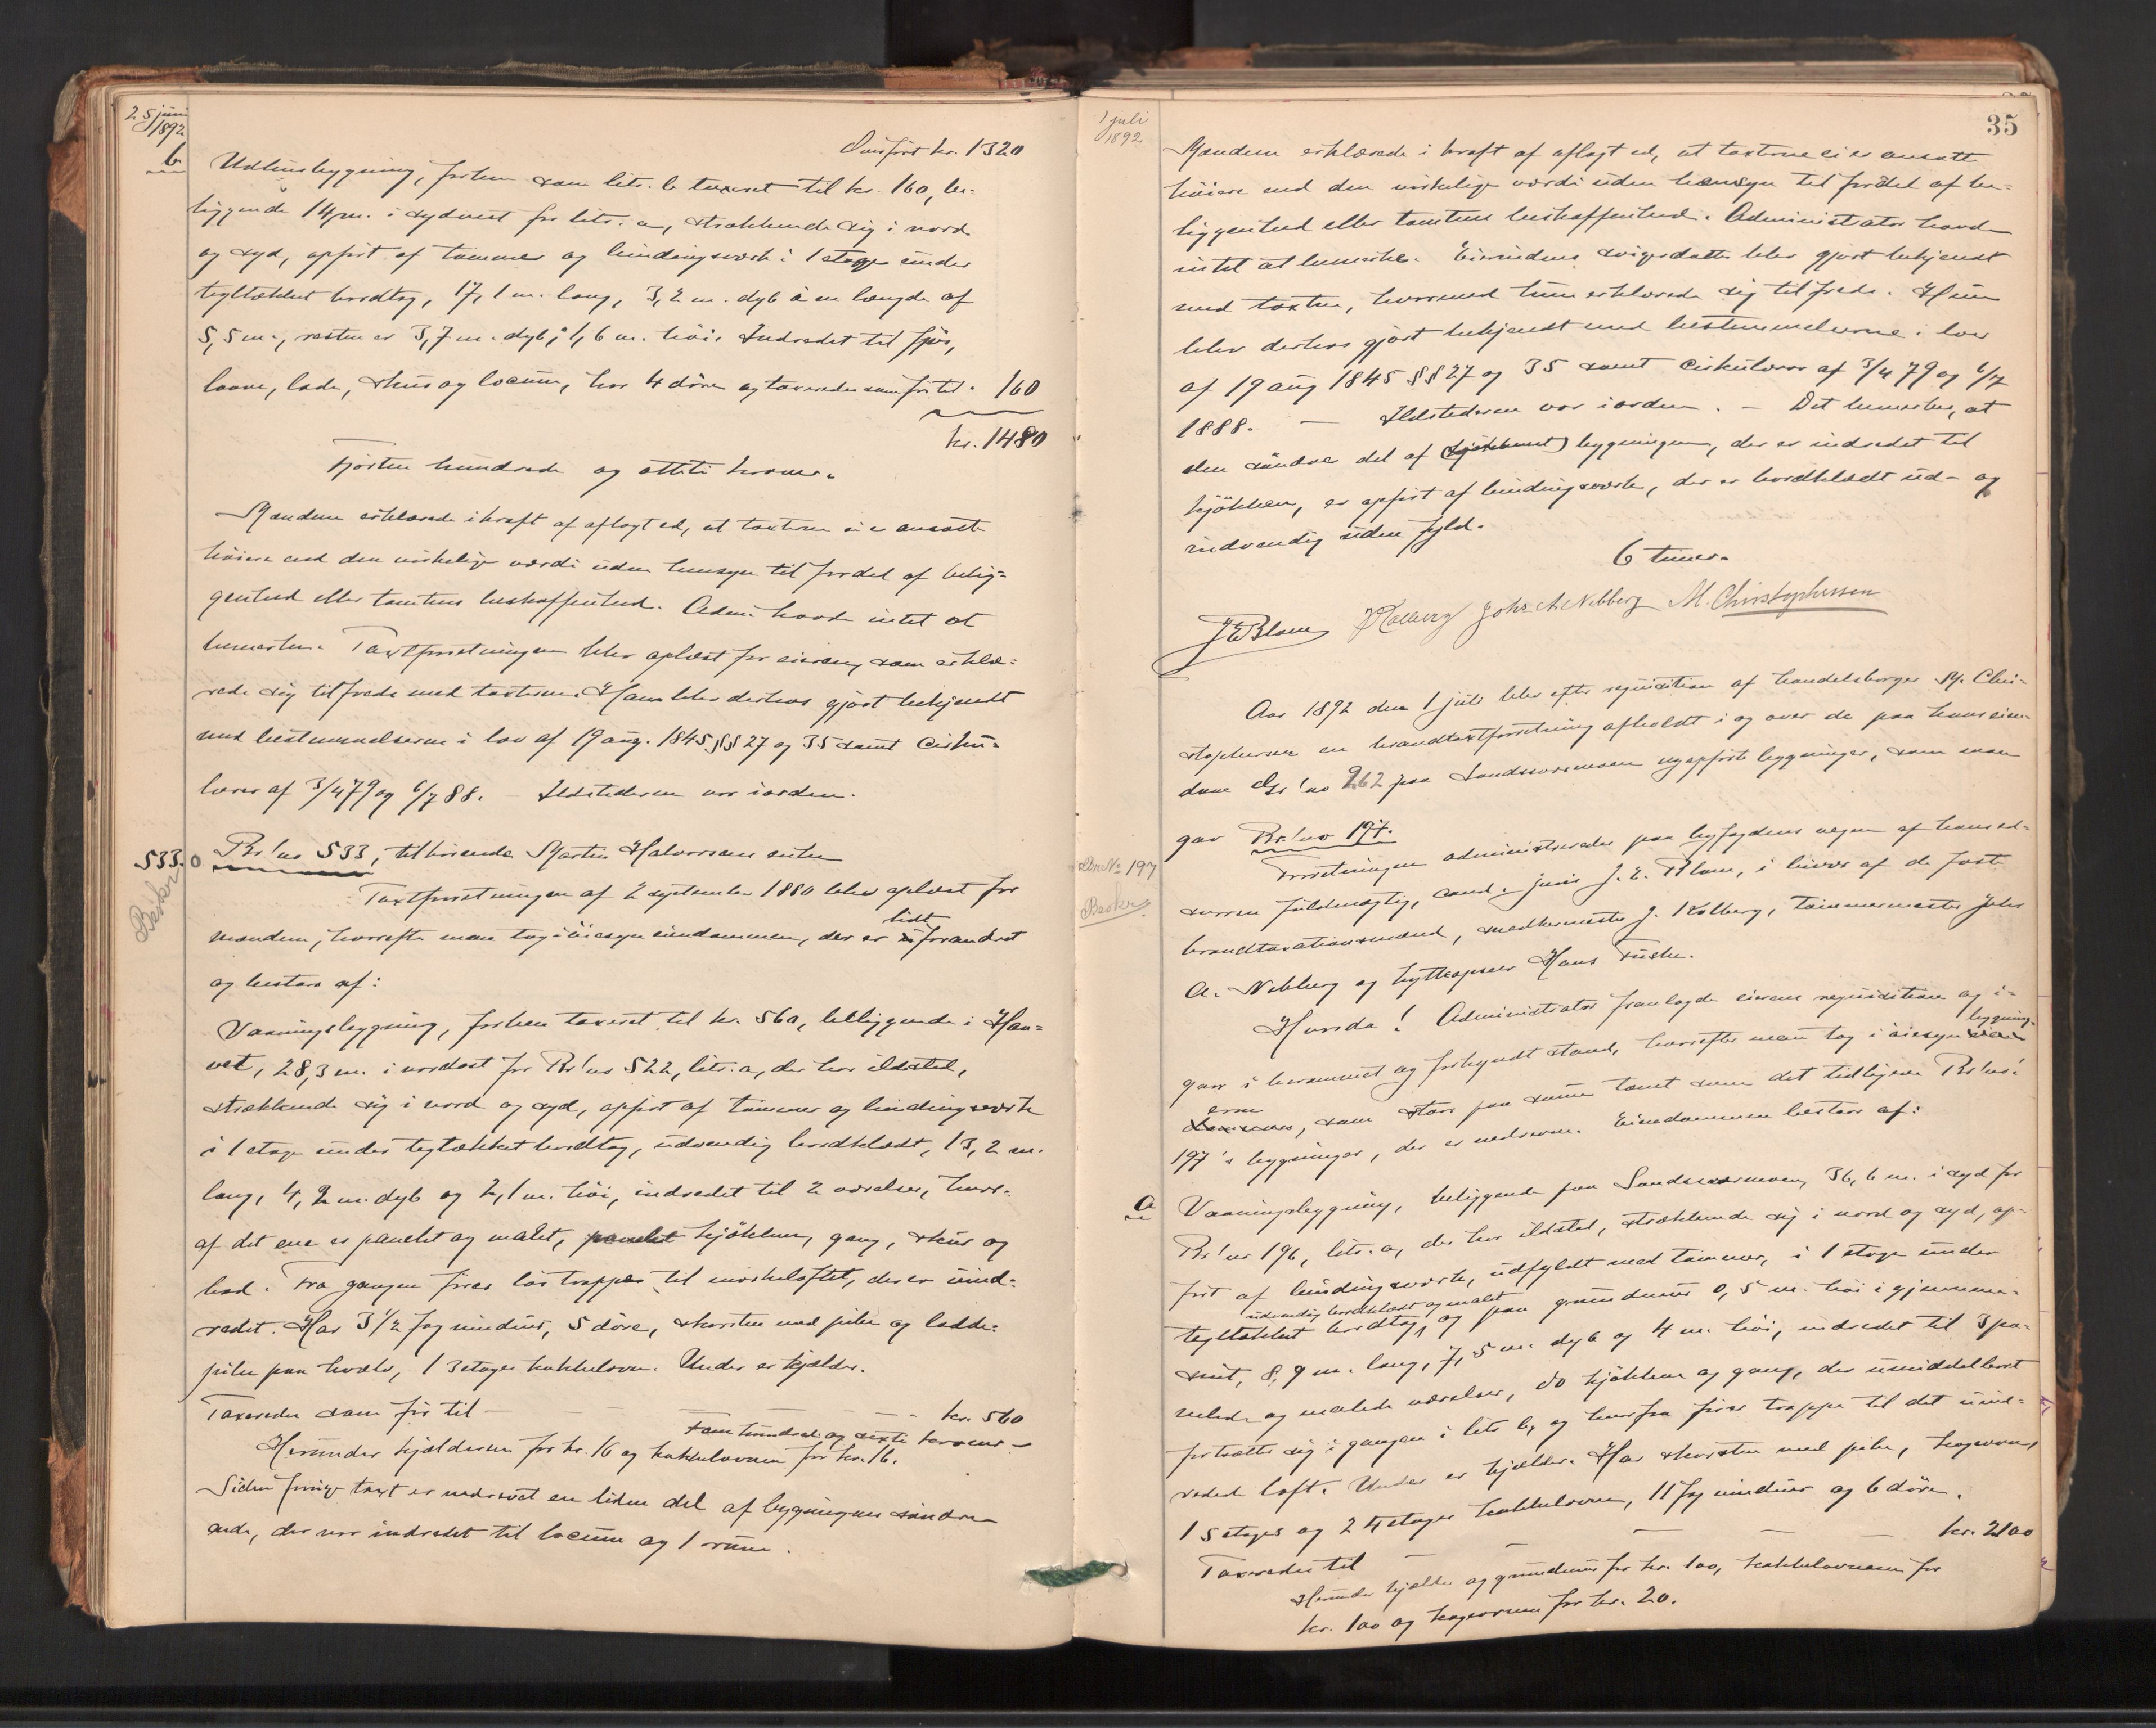 25 juni
1892
Overført kr. 1320
b
Udhusbygning, forhen som litr. b taxeret til kr. 160, be-
liggende 14,m. i sydvest for litr. a, strækkende sig i nord
og syd, opført af tømmer og bindingsværk i 1 etage under
tegltækket bordtag, 17,1 m. lang, 3,2 m. dyb i en længde af
5,5 m., resten er 3,7 m. dyb; 1,6 m. høi. Indredet til fjøs,
laave, lade, skur og locum, har 4 døre og taxeredes som før til. 160
kr. 1480
Fjorten hundrede og otteti kroner.
Mændene erklærede i kraft af aflagt ed, at taxterne ei er ansatte
høiere end den virkelige værdi uden hensyn til fordel af belig-
genhed eller tomtens beskaffenhed. Adm. havde intet at
bemærke. Taxtforretningen blev oplæst for eieren, som erklæ-
rede sig tilfreds med taxterne. Han blev derhos gjort bekjendt
med bestemmelserne i lov af 19 aug. 1845 §§ 27 og 35 samt cirku-
lærer af 3/4 79 og 6/7 88. – Ildstederne var iorden.
533.
Besk.
Br/no 533, tilhørende Martin Halvorsens enke
Taxtforretningen af 2 september 1880 blev oplæst for
mændene, hvorefter man tog i øiesyn eiendommen, der er lidt forandret
og bestaar af:
Vaaningsbygning, forhen taxeret til kr. 560, beliggende i Hau-
vet, 28,3 m. i nordost for Br/no 522, litr. a, der har ildsted,
strækkende sig i nord og syd, opført af tømmer og bindingsværk
i 1 etage under tegltækket bordtag, udvendig bordklædt, 13,2 m.
lang, 4,2 m. dyb og 2,1 m. høi, indredet til 2 værelser, hvor-
af det ene er panelet og malet, panelet kjøkken, gang, skur og
bod. Fra gangen fører løs trappe til mørkeloftet, der er uind-
redet. Har 3 1/2 fag vinduer, 5 døre, skorsten med pibe og ladde-
pibe paa hvælv, 1 3etages kakkelovn. Under er kjælder.
Taxeredes som før til – – – – kr. 560
Fem hundrede og sexti kroner –
Herunder kjælderen for kr. 16 og kakkelovnen for kr. 16.
Siden forrige taxt er nedrevet en liden del af bygningens søndre
ende, der var indredet til locum og 1 rum.
1 juli
1892
35
Mændene erklærede i kraft af aflagt ed, at taxterne ei er ansatte
høiere end den virkelige værdi uden hensyn til fordel af be-
liggenhed eller tomtens beskaffenhed. Administrator havde
intet at bemærke. Eierindens svigerdatter blev gjort bekjendt
med taxten, hvormed hun erklærede sig tilfreds. Hun
blev derhos gjort bekjendt med bestemmelserne i lov
af 19 aug 1845 §§ 27 og 35 samt cirkulærer af 3/4 79 og 6/7
1888. – Ildstederne var iorden. – Det bemærkes, at
den søndre del af bygningen, der er indredet til
kjøkken, er opført af bindingsværk, der er bordklædt ud- og
indvendig uden fyld.
6 timer.
J E Blom J Kolberg Johr. A Nebberg M. Christophersen
Aar 1892 den 1 juli blev efter requisition af handelsborger M. Chri-
stophersen en brandtaxtforretning afholdt i og over de paa hans eien-
dom Gr/no 262 paa Sandsværmoen nyopførte bygninger, som man
gav Br/no 197.
Br No 197
Besk.
Forretningen administreredes paa byfogdens vegne af hans ed-
svorne fuldmægtig, cand. juris J. E. Blom, i hvoes af de faste
brandtaxationsmænd, snedkermester J. Kolberg, tømmermester Johr
A. Nebberg og hytteopseer Hans Fuske.
Hvorda! Administrator fremlagde eierens requisition og i-
gav i berammet og forkyndt stand, hvorefter man tog i øiesyn bygning-
erne, som staar paa samme tomt som det tidligere Br/no's
197's bygninger, der er nedrevne. Eiendommen bestaar af:
a
Vaaningsbygning, beliggende paa Sandsværmoen, 36,6 m. i syd for
Br/no 196, litr. a, der har ildsted, strækkende sig i nord og syd, op-
ført af bindingsværk, udfyldt med tømmer, i 1 etage under
udvendig bordklædt og malet
tegltækket bordtag, og paa grundmur 0,5 m. høi i gjennem-
snit, 8,9 m. lang, 7,5 m. dyb og 4 m. høi, indredet til 3 pa-
nelede og malede værelser, do kjøkken og gang, der umiddelbart
fortsætter sig i gangen i litr b, og hvorfra fører trappe til det uind-
redede loft. Under er kjælder. Har skorsten med pibe, kogeovn,
1 5etages og 2 4etages kakkelovne, 11 fag vinduer og 6 døre.
Taxeredes til – – – – – kr. 2100
Herunder kjælder og grundmur for kr. 100, kakkelovnene for
kr. 100 og kogeovnen for kr. 20.